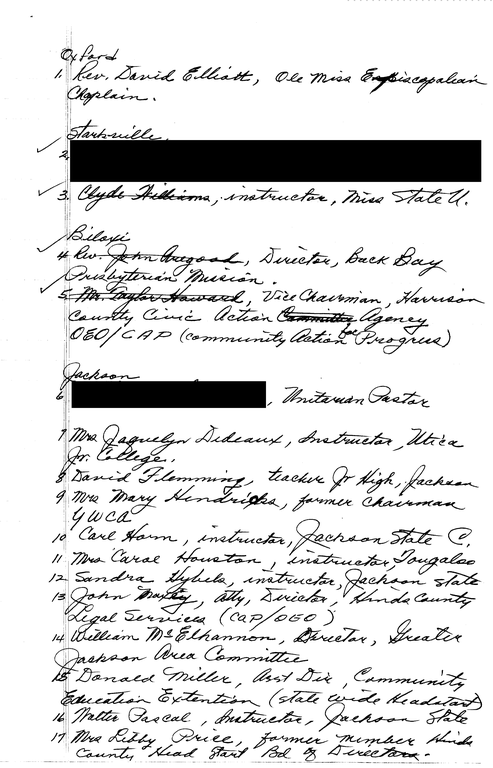 Oxford
1. Rev. David Elliott, Ole Miss Episcopalian
Chaplain.
Starkville
2.
3. Clyde Williams, instructor, Miss State U.
Biloxi
4. Rev. John Aregood, Director, Back Bay
Presbyterian Mission.
5. Mr. Taylor Howard, Vice Chairman, Harrison
County Civic Action Committee Agency
OEO/CAP (Community Action for Progress)
Jackson
6 , Unitarian Pastor
7 Mrs Jaquelyn Dedeaux, Instructor, Utica
Jr. College.
8 David Flemming, teacher Jr High, Jackson
9 Mrs Mary Hendricks, former chairman
YWCA
10 Carl Horn, instructor, Jackson State C.
11 Mrs Carol Houston, instructor, Tougaloo
12 Sandra Hybels, instructor, Jackson State
13 John Maxey, Atty, Director, Hinds County
Legal Services (CAP/OEO)
14 William McElhannon, Director, Greater
Jackson Area Committee
15 Donald Miller, Asst Dir, Community
Education Extention (state wide Headstart)
16 Walter Pascal, Instructor, Jackson State
17 Mrs Libby Price, former member Hinds
County Head Start Bd of Directors.